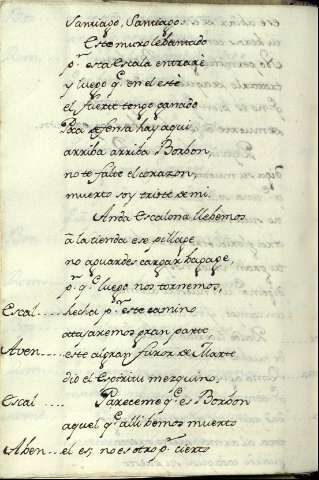 Santiago, Santiago
Este muro lebantado
pr esta escala entraré
y luego qe en el esté
el fuerte tengo ganado
Poca defensa hay aqui,
arriba arriba Borbon,
no te falte el corazon,
muerto soy triste de mi.
Anda Escalona llebemos
â la tienda ese pillage
no aguardes cargar bagage,
pr qe luego nos tornemos,
Escal.... hechá pr este camino
atajaremos gran parte
Aven.... este al gran furor de Marte
dió el Espiritu mezquino,
Escal.... Pareceme qe es Borbon
aquel qe alli bemos muerto
Aben... el es, no es otro pr cierto